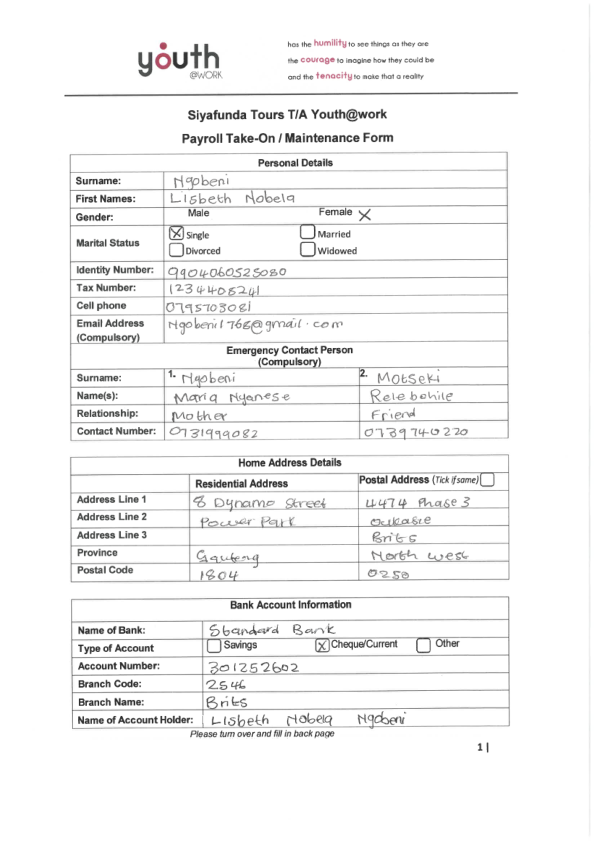 youth
@WORK
has the humility to see things as they are
the courage to imagine how they could be
and the tenacity to make that a reality
Siyafunda Tours T/A Youth@work
Payroll Take-On / Maintenance Form
Personal Details
Surname: Ngobeni
First Names: Lisbeth Nobela
Gender: Male Female X
Marital Status
X Single Married
Divorced Widowed
Identity Number: 9904060525080
Tax Number: 1234408241
Cell phone 0795703081
Email Address Ngobeni1768@gmail.com
(Compulsory)
Emergency Contact Person
(Compulsory)
Surname: 1. Ngobeni 2. Motseki
Name(s): Maria Nyanese Relebohile
Relationship: Mother Friend
Contact Number: 0731999082 0739740220
Home Address Details
Residential Address Postal Address (Tick if same)
Address Line 1 8 Dynamo Street 4474 Phase 3
Address Line 2 Power Park Oukasie
Address Line 3 Brits
Province Gauteng North West
Postal Code 1804 0250
Bank Account Information
Name of Bank: Standard Bank
Type of Account Savings X Cheque/Current Other
Account Number: 301252602
Branch Code: 2546
Branch Name: Brits
Name of Account Holder: Lisbeth Nobela Ngobeni
Please turn over and fill in back page
1 |